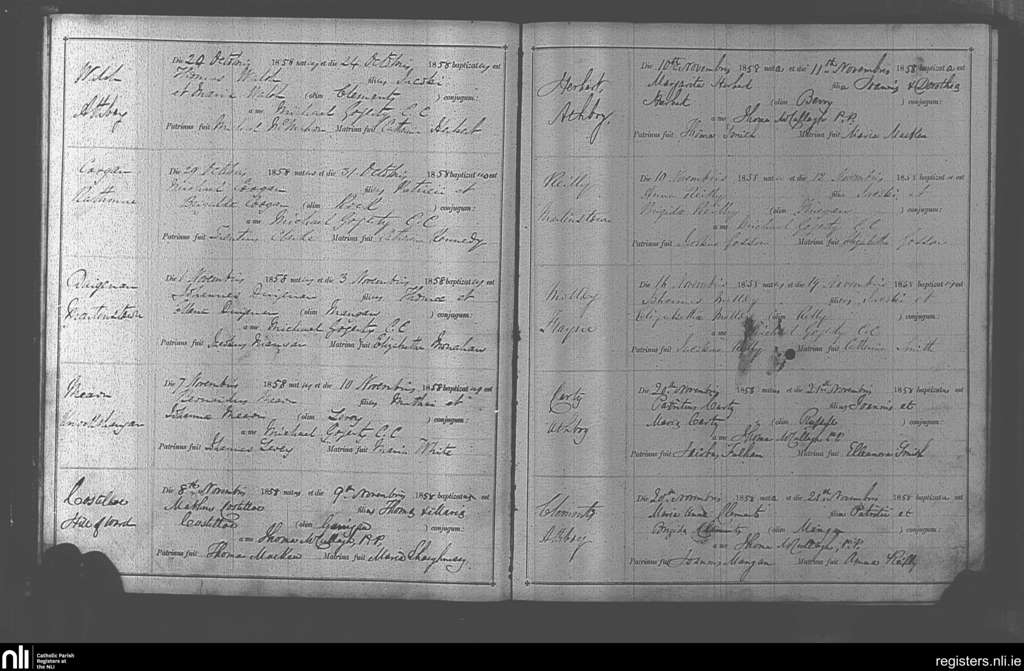 Walsh
Athboy
Die 20 Octobris 1858 natus et die 24 Octobris 1858 baptizatus est
Thomas Walsh filius Jacobi
et Maria Walsh (olim Clements) conjugum:
a me Michael Gogerty C C
Patrinus fuit Michael McMahon Matrina fuit Catherine Herbert
Coogan
Rathmore
Die 29 Octobris 1858 natus et die 31 Octobris 1858 baptizatus est
Michael Coogan filius Patricii et
Brigidae Coogan (olim) conjugum:
a me Michael Gogerty C.C
Patrinus fuit Matrina fuit Kennedy
Duigenan
Martinstown
Die 1 Novembris 1858 natus et die 3 Novembris 1858 baptizatus est
Johannes Duigenan filius Thomae et
Duignan (olim Mangan) conjugum:
a me Michael Gogerty C.C
Patrinus fuit Mangan Matrina fuit Elizabetha Monahan
Meason
Die 7 Novembris 1858 natus et die 10 Novembris 1858 baptizatus est
filius et
(olim Levoy) conjugum:
a me Michael Gogerty C C
Patrinus fuit Matrina fuit Maria White
Costelloe
Hill of Ward
Die 8th Novembris 1858 natus et die 9th Novembris 1858 baptizatus est
Costelloe filius Thomae & Maria
Costelloe (olim) conjugum:
a me Thoma McCullagh, P.P.
Patrinus fuit Thomas Macken Matrina fuit Maria Shaughnessy
Herbert,
Athboy.
Die 10th Novembris 1858 nata et die 11th Novembris 1858 baptizata est
Margarita Herbert filia Joannis & Dorothea
Herbert (olim Barry) conjugum:
a me Thoma McCullagh P.P.
Patrinus fuit Thomas Smith Matrina fuit Maria Macken
Reilly
Martinstown
Die 10 Novembris 1858 nata et die 12 Novembris 1858 baptizata est
Anna Reilly filia Jacobi et
Brigida Reilly (olim) conjugum:
a me Michael Gogerty C.C
Patrinus fuit Matrina fuit Elizabetha
Molloy
Die 16 Novembris 1858 natus et die 19 Novembris 1858 baptizatus est
Johannes filius Jacobi et
Elizabetha (olim Kelly) conjugum:
a me Michael Gogerty C.C
Patrinus fuit Matrina fuit Catherine Smith
Carty
Athboy
Die 20th Novembris 1858 natus et die 21st Novembris 1858 baptizatus est
Patritius Carty filius Joannis et
Maria Carty (olim) conjugum:
a me Thoma McCullagh P.P.
Patrinus fuit Fulham Matrina fuit Eleanora Smith
Clements
Athboy
Die 20th Novembris 1858 nata et die 21st Novembris 1858 baptizata est
Maria Anna Clements filia Patritii et
Brigida Clements (olim Mangan) conjugum:
a me Thoma McCullagh, P.P.
Patrinus fuit Joannis Mangan Matrina fuit Anna Reilly
nli
Catholic Parish
Registers at
the NLI
registers.nli.ie